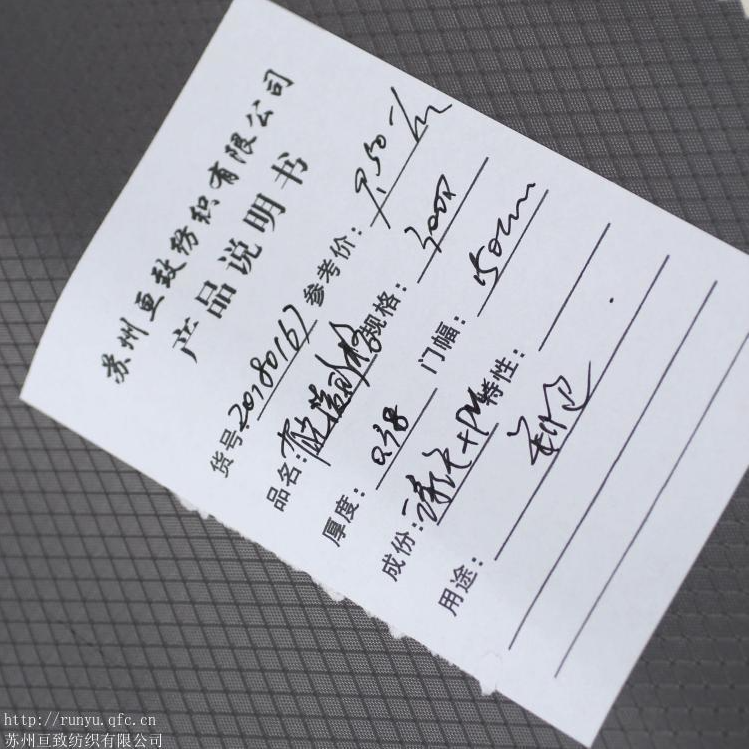 苏州亘致纺织有限公司
产品说明书
货号:20180167 参考价:9.50-/m
品名: 规格:300D
厚度:0.38 门幅:150cm
成份: +PU 特性:
用途:
http://runyu.qfc.cn
苏州亘致纺织有限公司